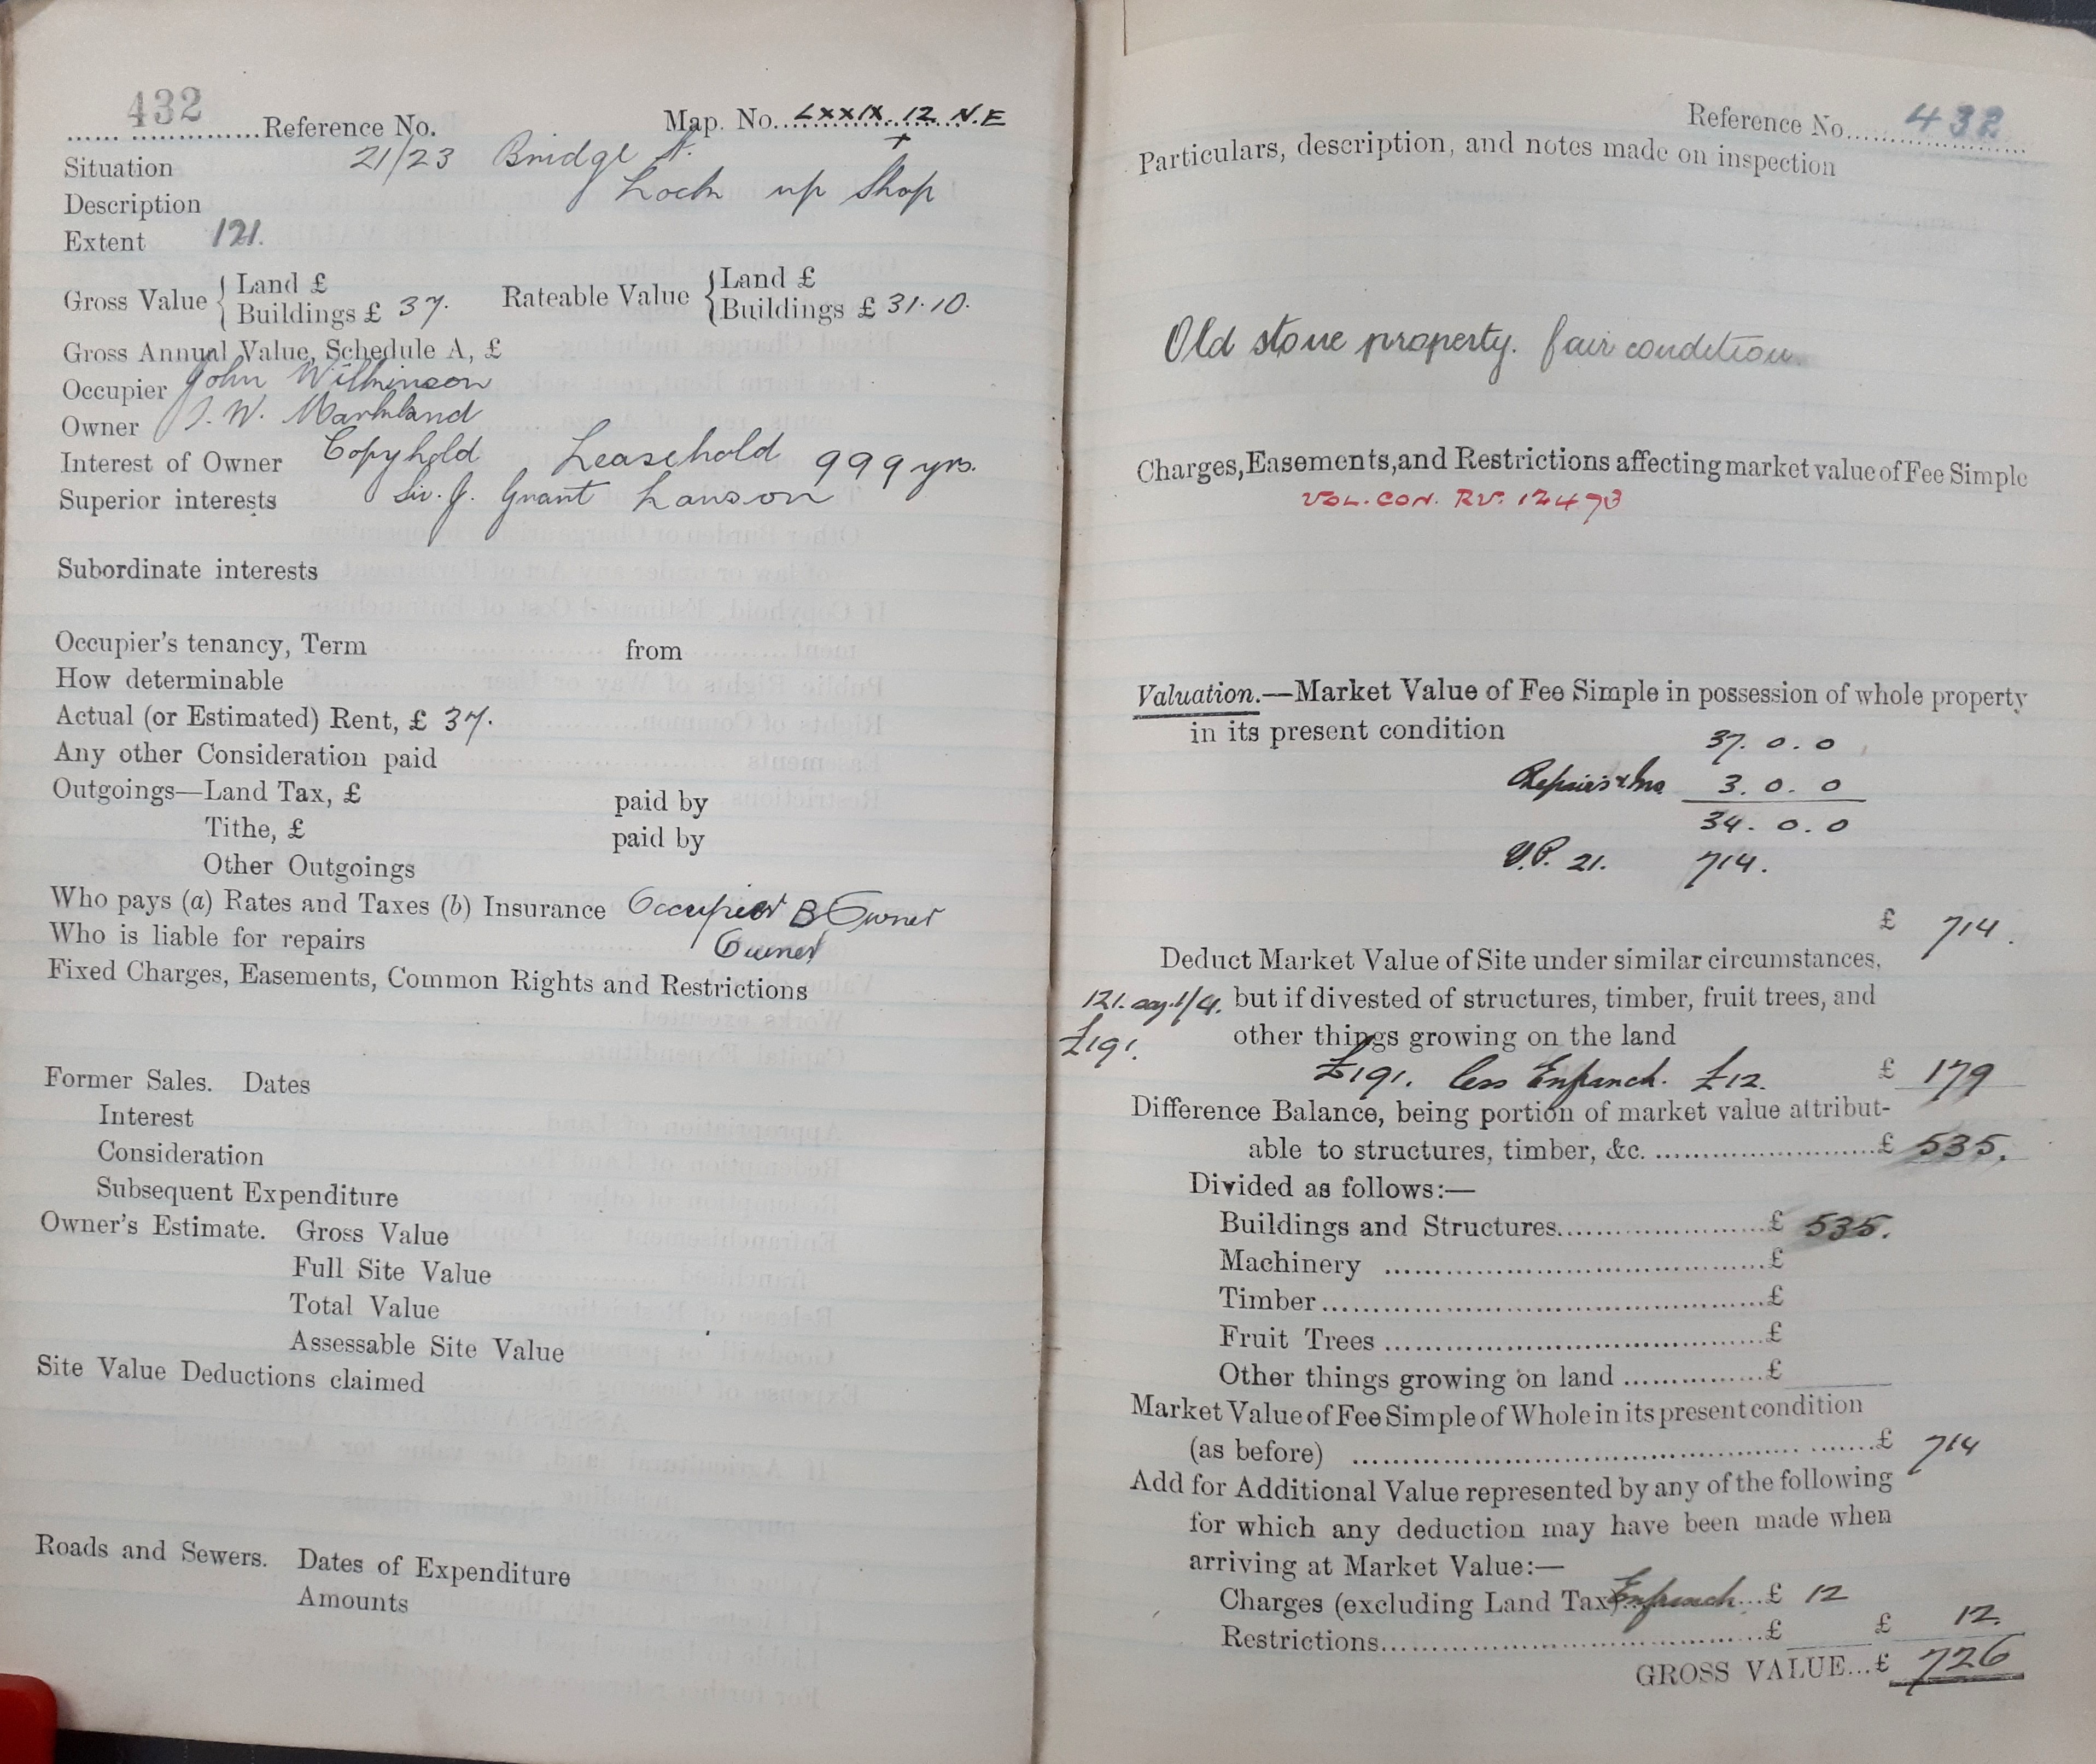 432 Reference No. Map. No. LXXIX. 12 N.E
Situation 21/23 Bridge St.
Description Lock up Shop
Extent 121.
Gross Value { Land £
Buildings £ 37. Rateable Value { Land £
Buildings £ 31.10.
Gross Annual Value, Schedule A, £
Occupier John Wilkinson
Owner J. W. Markland
Interest of Owner Copyhold Leasehold 999 yrs.
Superior interests Sir. J. Grant Lawson
Subordinate interests
Occupier's tenancy, Term from
How determinable
Actual (or Estimated) Rent, £ 37.
Any other Consideration paid
Outgoings—Land Tax, £ paid by
Tithe, £ paid by
Other Outgoings
Who pays (a) Rates and Taxes (b) Insurance Occupier B Owner
Who is liable for repairs Owner
Fixed Charges, Easements, Common Rights and Restrictions
Former Sales. Dates
Interest
Consideration
Subsequent Expenditure
Owner's Estimate. Gross Value
Full Site Value
Total Value
Assessable Site Value
Site Value Deductions claimed
Roads and Sewers. Dates of Expenditure
Amounts
Reference No. 432
Particulars, description, and notes made on inspection
Old stone property. fair condition.
Charges, Easements, and Restrictions affecting market value of Fee Simple
VOL. CON. RV. 12473
Valuation.—Market Value of Fee Simple in possession of whole property
in its present condition
37. 0. 0
Repairs & Ins. 3. 0. 0
34. 0. 0
Y.P. 21. 714.
£ 714.
Deduct Market Value of Site under similar circumstances,
121. say 1/4. but if divested of structures, timber, fruit trees, and
£191. other things growing on the land
£191. less Enfranch. £12. £ 179
Difference Balance, being portion of market value attribut-
able to structures, timber, &c. £ 535.
Divided as follows:—
Buildings and Structures £ 535.
Machinery £
Timber £
Fruit Trees £
Other things growing on land £
Market Value of Fee Simple of Whole in its present condition
(as before) £ 714
Add for Additional Value represented by any of the following
for which any deduction may have been made when
arriving at Market Value:—
Charges (excluding Land Tax) Enfranch. £ 12
Restrictions £ £ 12.
GROSS VALUE...£ 726